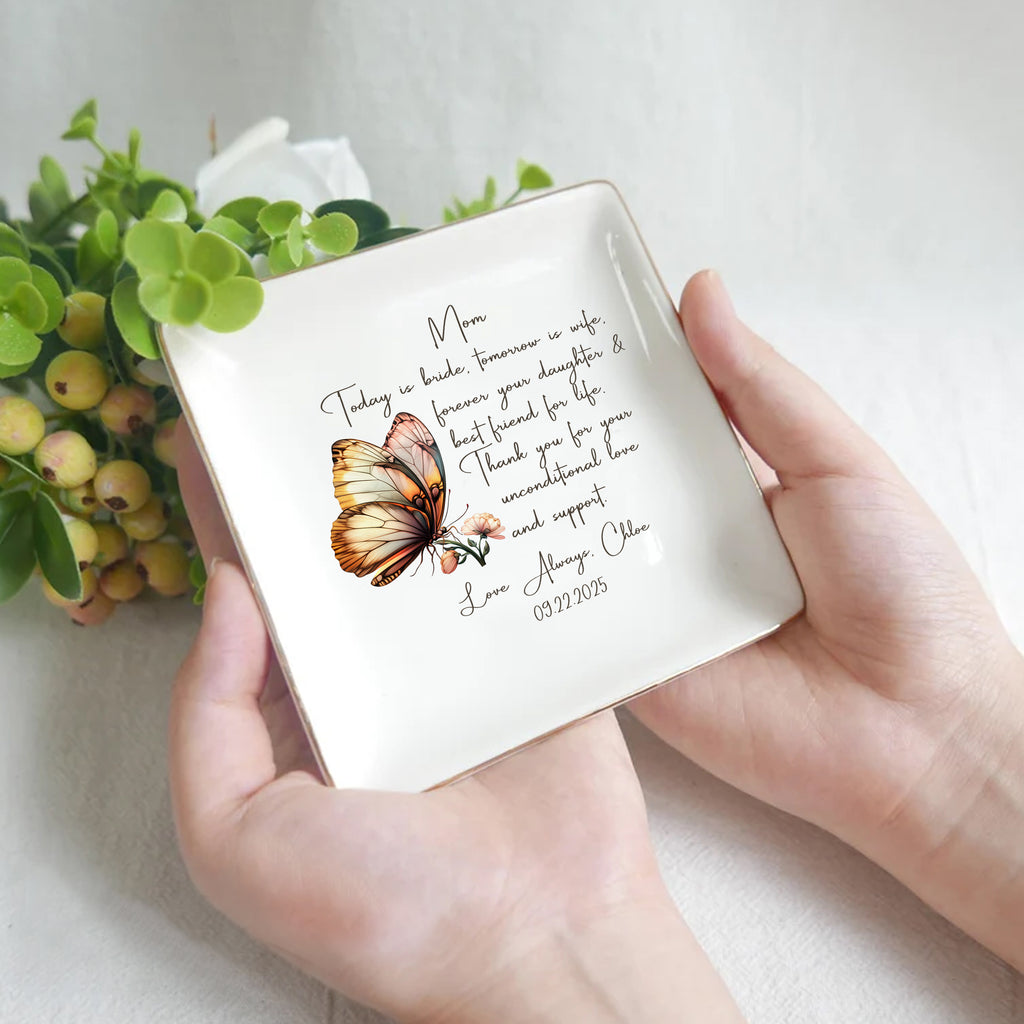 Mom
Today is bride, tomorrow is wife,
forever your daughter &
best friend for life.
Thank you for your
unconditional love
and support.
Love Always, Chloe
09.22.2025